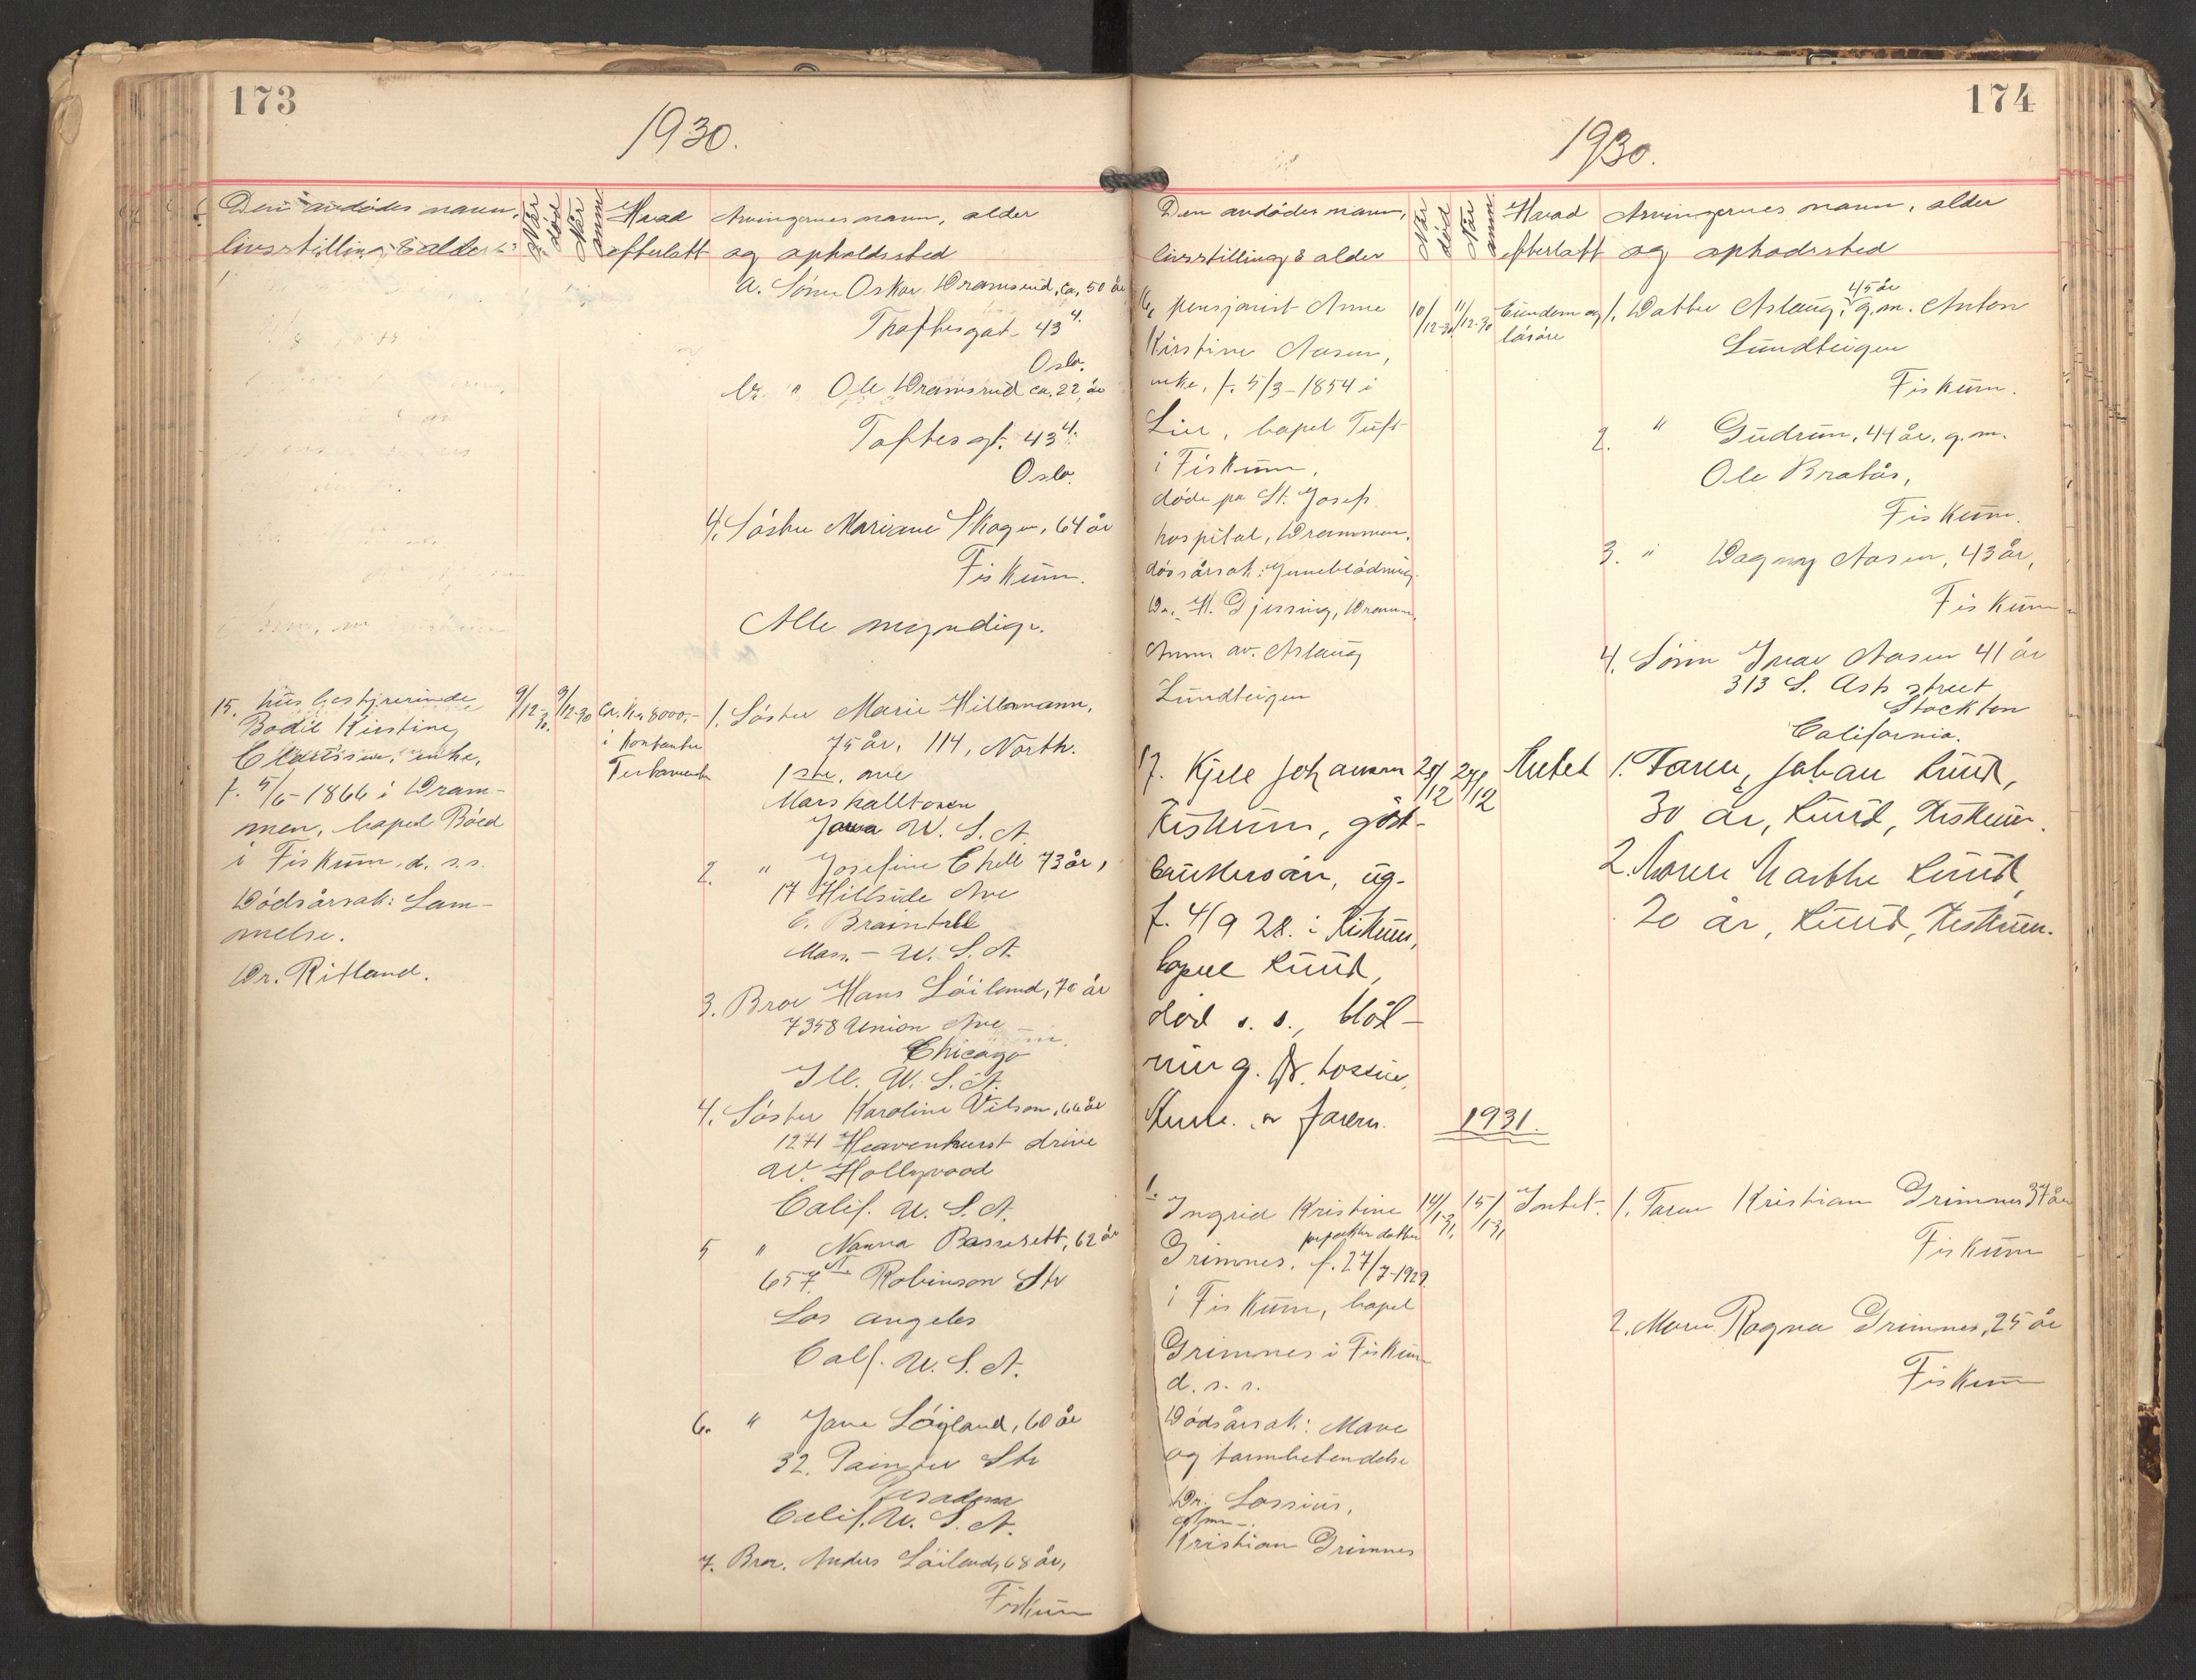 173
1930.
Den avdödes navn,
livsstilling & alder
Når död
Når anm
Hvad
efterlatt
Arvingernes navn, alder
og opholdssted
a. Sönn Oskar Dramsrud, ca. 50 år
Toftesgat. 43 4.
Oslo.
b. " Ole Dramsrud ca. 22 år
Toftesgt. 43 4.
Oslo.
4. Söster Mariane Skogen, 64 år
Fiskum.
Alle myndige.
15. husbestyrerinde
Bodil Kirstine
enke,
f. 5/6-1866 i Dram-
men, bopel Böed
i Fiskum, d. s.s.
Dödsårsak: Lam-
melse.
Dr. Ritland.
9/12-30.
9/12-30
Ca. kr. 8000,-
i kontanter
Testamente
1. Söster Marie Hillmann,
75 år, 114, North.
1 ste. ave
Marshalltown
Jowa U. S. A.
2. " Josefine Ekell 73 år,
17 Hillside Ave
E. Braintree
Mass. - U. S. A.
3. Bror Hans Löiland, 70 år
7358 Union Ave
Chicago
Ill. U. S. A.
4. Söster Karoline Vilson, 66 år
1271 Heavenhurst drive
W. Hollywood
Calif. U. S. A.
5 " Nanna Bassesett, 62 år
657 N. Robinson Str
Los angeles
Calf. U. S. A.
6. " Jane Löyland, 60 år
32. Painter Str
Pasadena
Calif. U. S. A.
7. Bror. Anders Löiland, 68 år,
Fiskum
174
1930.
Den avdödes navn,
livsstilling & alder
Når död
Når anm
Hvad
efterlatt
Arvingernes navn, alder
og ophodssted
16, pensjonist Anne
Kirstine Aasen,
enke, f. 5/3-1854 i
Lier, bopel Tuft-
i Fiskum,
döde på St. Josefs
hospital, Drammen.
dösårsak: Jnneblödning.
Dr. H. Gjessing, Dramm.
Anm av. Aslaug
Lundteigen
10/12-30
11/12-30
Eiendom og
lösöre
1. Datter Aslaug, 45 år g.m. Anton
Lundteigen
Fiskum.
2. " Gudrun, 44 år, g.m.
Ole Bratås,
Fiskum.
3. " Dagny Aasen, 43 år,
Fiskum
4. Sönn Jvar Aasen 41 år
313 S. Ash street
Stockton
California.
17. Kjell Johansen
Fiskum, gård-
brukersön, ug.
f. 4/9 28. i Fiskum,
bopel Ruud,
död s. s., blöd-
ning. Dr. Lossius,
Anm. av faren.
28/12
29/12
Intet
1. Faren, Johan Ruud,
30 år, Ruud, Fiskum.
2. Moren Marthe Ruud,
20 år, Ruud, Fiskum.
1931.
1. Ingrid Kristine
forpakter datter
Grimnes. f. 27/7-1929
i Fiskum, bopel
Grimnes i Fiskum
d. s. s.
Dödsårsak: Mave
og tarmbetendelse
Dr. Lossius,
Anm.
Kristian Grimnes
14/1-31,
15/1-31,
Intet.
1. Faren Kristian Grimnes 37 år
Fiskum
2. Moren Ragna Grimnes, 25 år
Fiskum